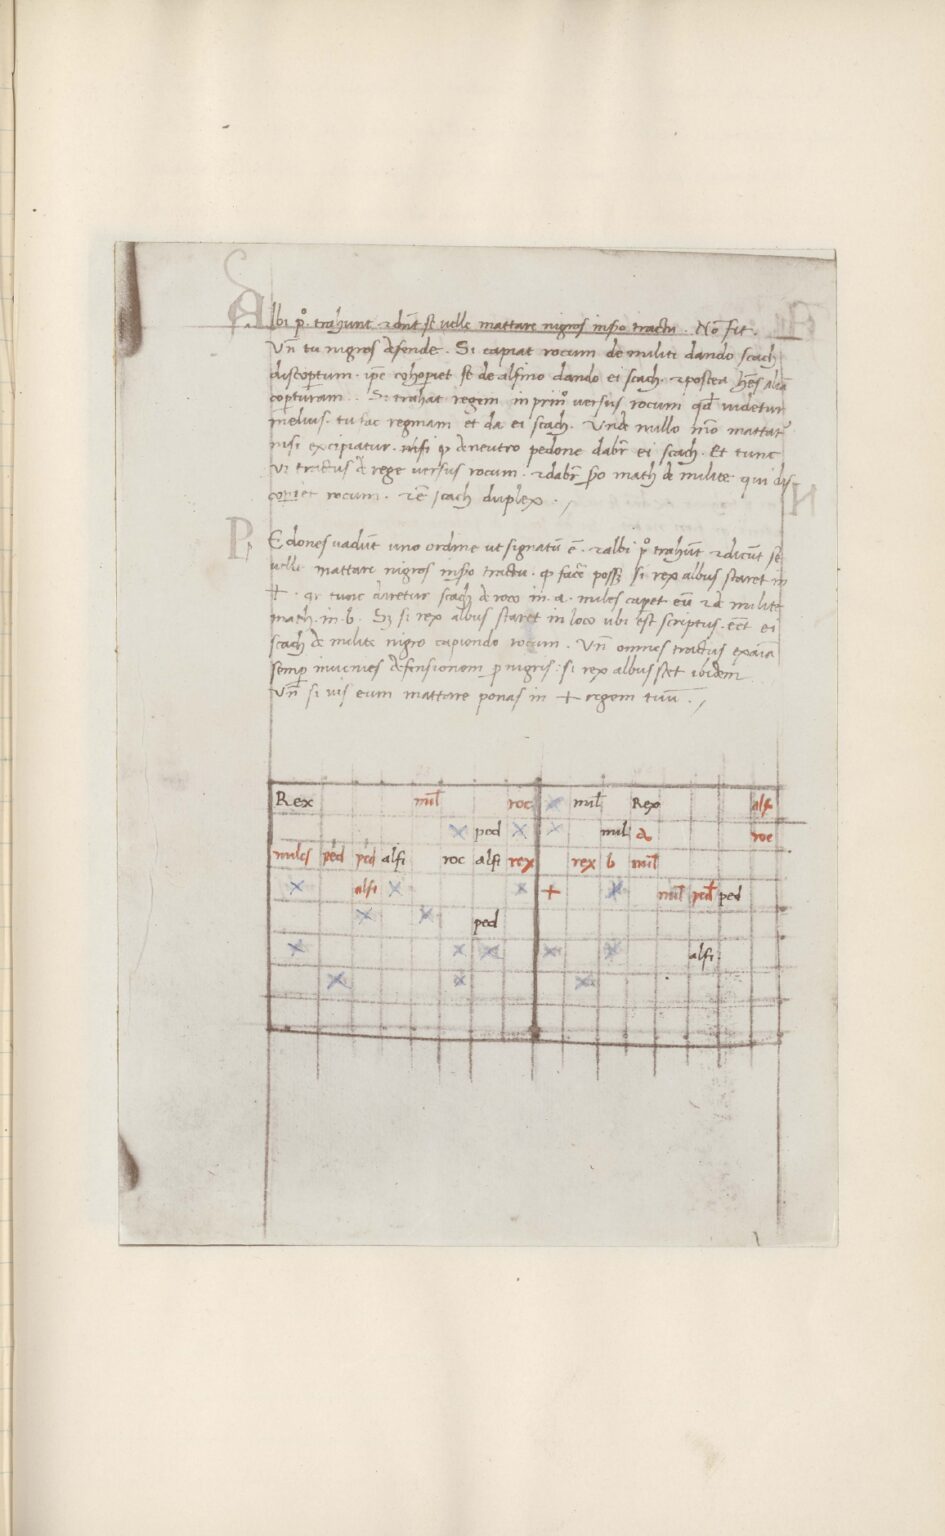 Albi p̊. trahunt ⁊ dnt̄ se velle mattare nigros in sꝑo tractu. No fit.
Vn̄ tu nigros defende. Si capiat rocum de militi dando scach
discoꝑtum. ip̄e cohoꝑiet se de alfino dando ei scach. ⁊ postea
coꝑturam. Si trahat regem in prim̊ versus rocum qd̄ videtur
melius. tu fac reginam et da ei scach. Unde nullo mō mattat᷑
nisi excipiatur. nisi ꝙ de neutro pedone dabr̄ ei scach. Et tunc
tractus de rege versus rocum. ⁊ dabr̄ math de milite qui dis
coꝑiet rocum. ⁊ ē scach duplex.
Pedones vadūt uno ordine ut signatū ē. ⁊ albi p̊ trahūt ⁊ dicūt se
velle mattare nigros in sꝑo tractu. ꝙ facē poss₃ si rex albus staret in
+. qr tunc diretur scach de roco in .a. miles capet eū ⁊ de milite
math. in .b. S₃ si rex albus staret in loco ubi est scriptus. ēēt ei
scach de milite nigro capiendo rocum. Vn̄ omnes tractus exaīa
semꝑ invenies defensionem ꝑ nigris: si rex albus stet ibidem
Vn̄ si vis eum mattare ponas in + regem tuū.
Rex mil̄ roc × mil̄ Rex alf
× ped × × mil a roc
miles ped ped alfi roc alfi rex rex b mil̄
× alfi × × + × mil̄ ped ped
× × ped
× × × × × alfi
× × ×